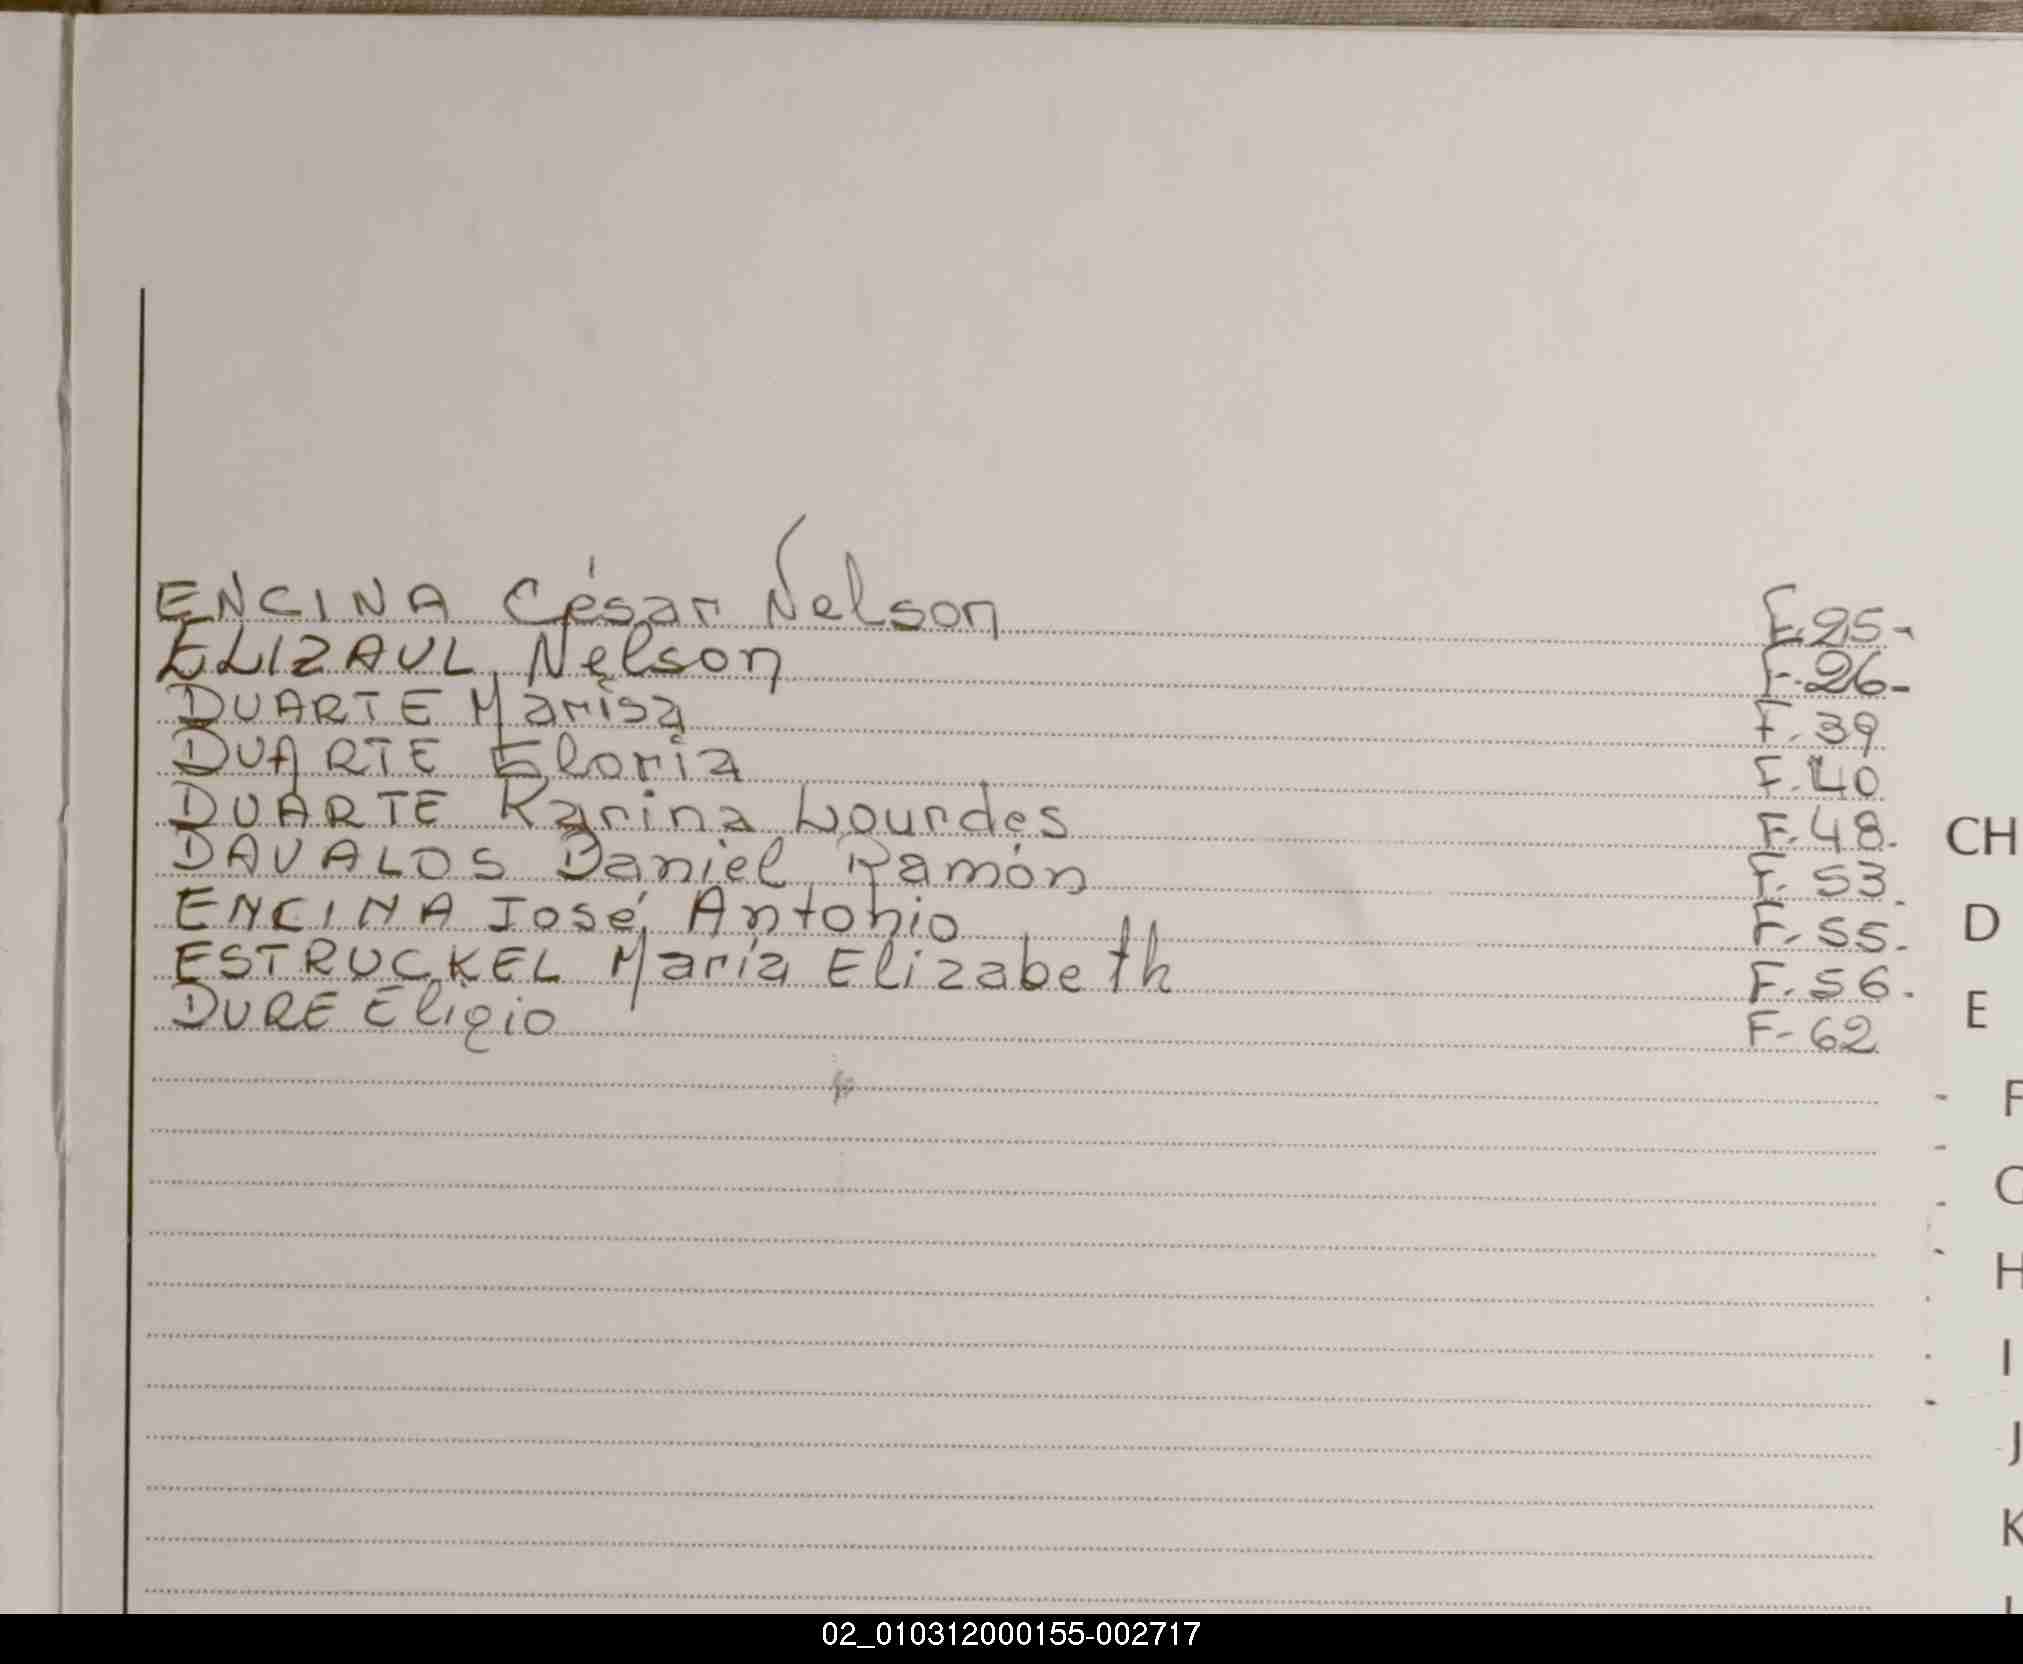 ENCINA César Nelson F.25-
ELIZAUL Nelson F.26-
DUARTE Marisa F.39
DUARTE Gloria F.40
DUARTE Karina Lourdes F.48.
DAVALOS Daniel Ramón F.53.
ENCINA José Antonio F.55.
ESTRUCKEL María Elizabeth F.56.
DURE Eligio F-62
CH
D
E
F
G
H
I
J
K
02_010312000155-002717